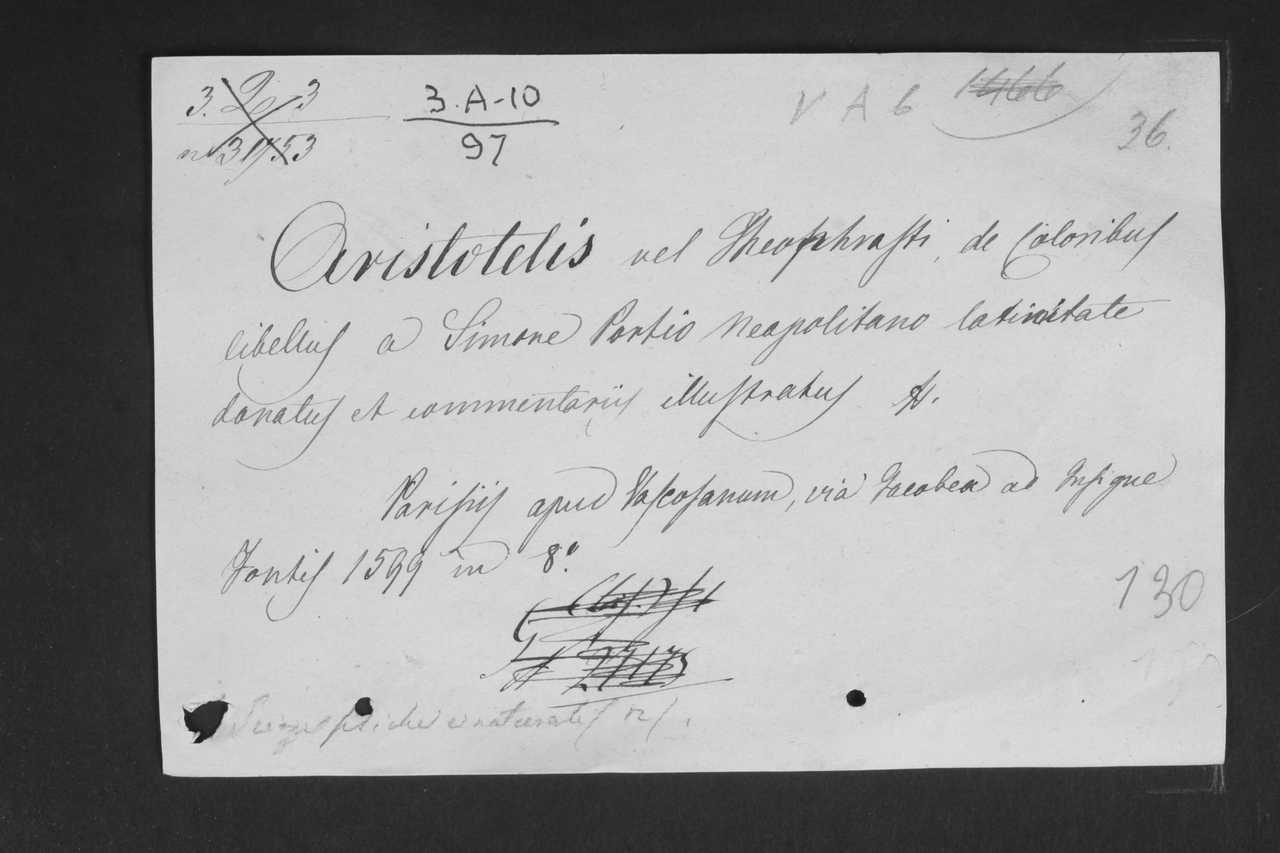 3. 2 3
n 31753
3.A-10
97
V A 6
36.
Aristotelis vel Theophrasti, de Coloribus
libellus a Simone Portio Neapolitano latinitate
donatus et commentarijs illustratus &.
Parisijs apud Vascosanum, via Jacobea ad Insigne
Fontis 1599 in 8º
130